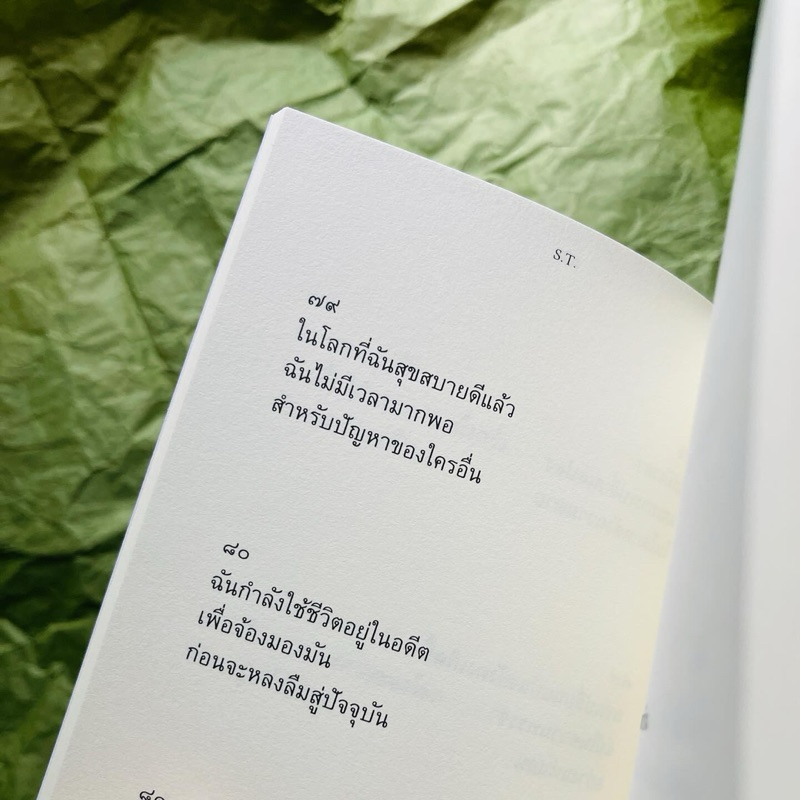 S.T.
๗๙
ในโลกที่ฉันสุขสบายดีแล้ว
ฉันไม่มีเวลามากพอ
สำหรับปัญหาของใครอื่น
๘๐
ฉันกำลังใช้ชีวิตอยู่ในอดีต
เพื่อจ้องมองมัน
ก่อนจะหลงลืมสู่ปัจจุบัน